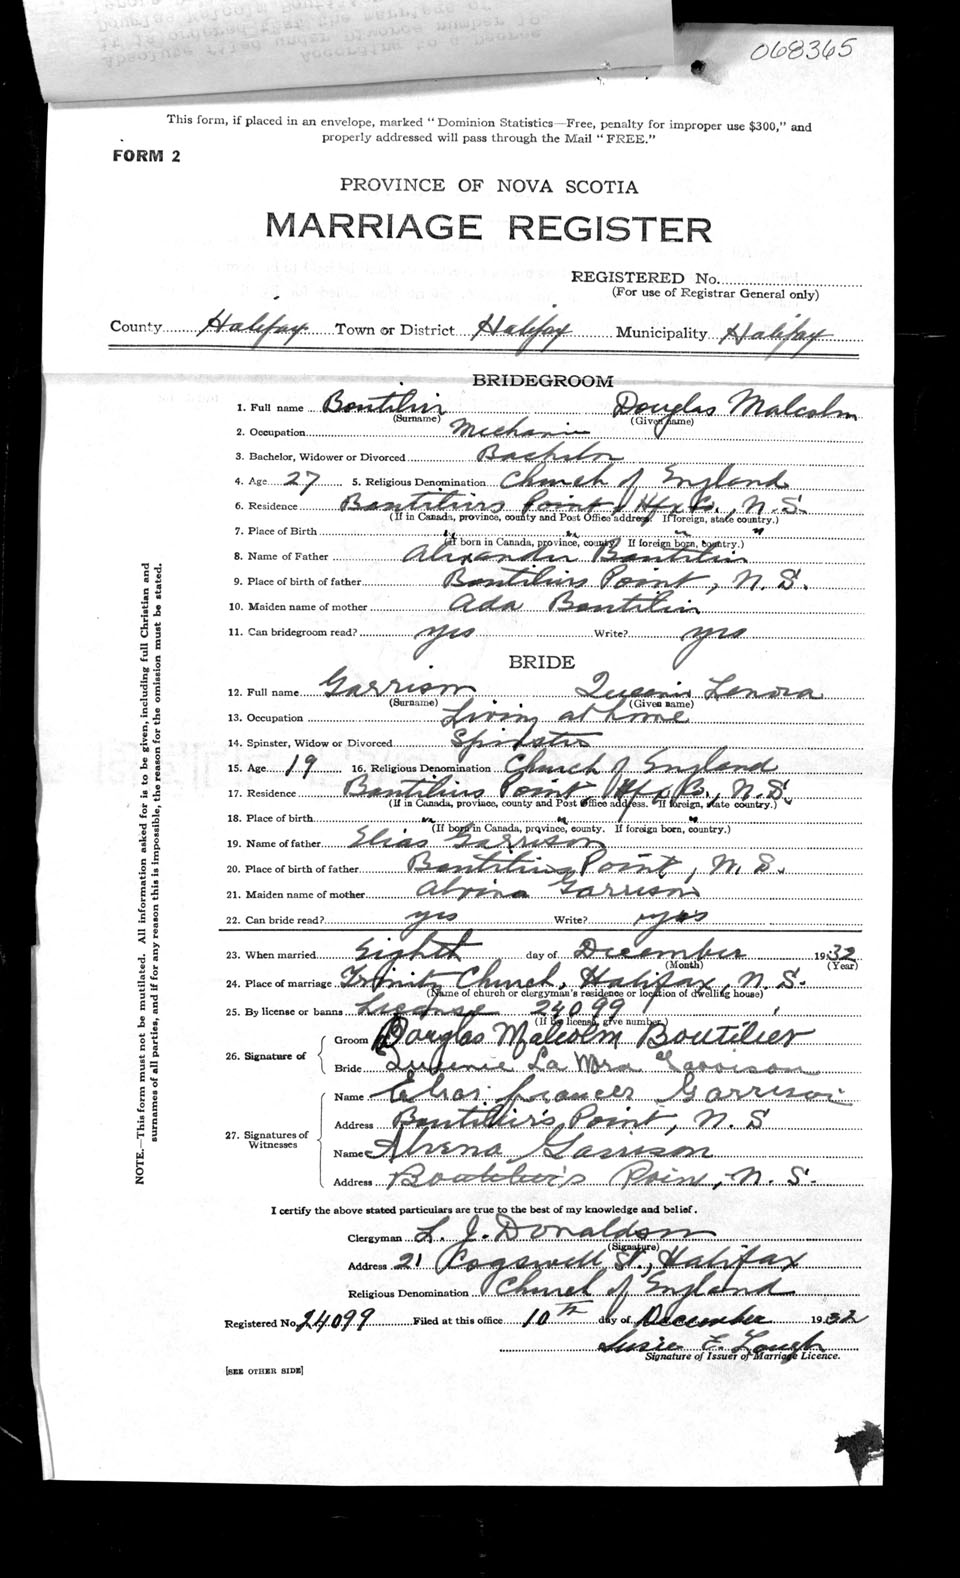 068365
This form, if placed in an envelope, marked "Dominion Statistics—Free, penalty for improper use $300," and
properly addressed will pass through the Mail "FREE."
FORM 2
PROVINCE OF NOVA SCOTIA
MARRIAGE REGISTER
REGISTERED No.
(For use of Registrar General only)
County Halifax Town or District Halifax Municipality Halifax
BRIDEGROOM
1. Full name Boutilier Douglas Malcolm
(Surname) (Given name)
2. Occupation Mechanic
3. Bachelor, Widower or Divorced Bachelor
4. Age 27 5. Religious Denomination Church of England
6. Residence Boutiliers Point, Hfx Co., N.S.
(If in Canada, province, county and Post Office address. If foreign, state country.)
7. Place of Birth " " " "
(If born in Canada, province, county. If foreign born, country.)
8. Name of Father Alexander Boutilier
9. Place of birth of father Boutiliers Point, N.S.
10. Maiden name of mother Ada Boutilier
11. Can bridegroom read? yes Write? yes
BRIDE
12. Full name Garrison Queenie Lenora
(Surname) (Given name)
13. Occupation Living at home
14. Spinster, Widow or Divorced Spinster
15. Age 19 16. Religious Denomination Church of England
17. Residence Boutiliers Point, Hfx Co., N.S.
(If in Canada, province, county and Post Office address. If foreign, state country.)
18. Place of birth " " "
(If born in Canada, province, county. If foreign born, country.)
19. Name of father Elias Garrison
20. Place of birth of father Boutiliers Point, N.S.
21. Maiden name of mother Alvina Garrison
22. Can bride read? yes Write? yes
23. When married Eighth day of December 1932
(Month) (Year)
24. Place of marriage Trinity Church, Halifax, N.S.
(Name of church or clergyman's residence or location of dwelling house)
25. By license or banns License 24099
(If by license, give number.)
26. Signature of Groom Douglas Malcolm Boutilier
Bride Queenie La Nora Garrison
27. Signatures of Witnesses
Name Elias Garrison
Address Boutilier's Point, N.S
Name Alvena Garrison
Address Boutilier's Point, N.S.
I certify the above stated particulars are true to the best of my knowledge and belief.
Clergyman L. J. Donaldson
(Signature)
Address 21 Cogswell St., Halifax
Religious Denomination Church of England
Registered No. 24099 Filed at this office 10th day of December 1932
Susie E.
Signature of Issuer of Marriage Licence.
[SEE OTHER SIDE]
NOTE.—This form must not be mutilated. All information asked for is to be given, including full Christian and
surnames of all parties, and if for any reason this is impossible, the reason for the omission must be stated.